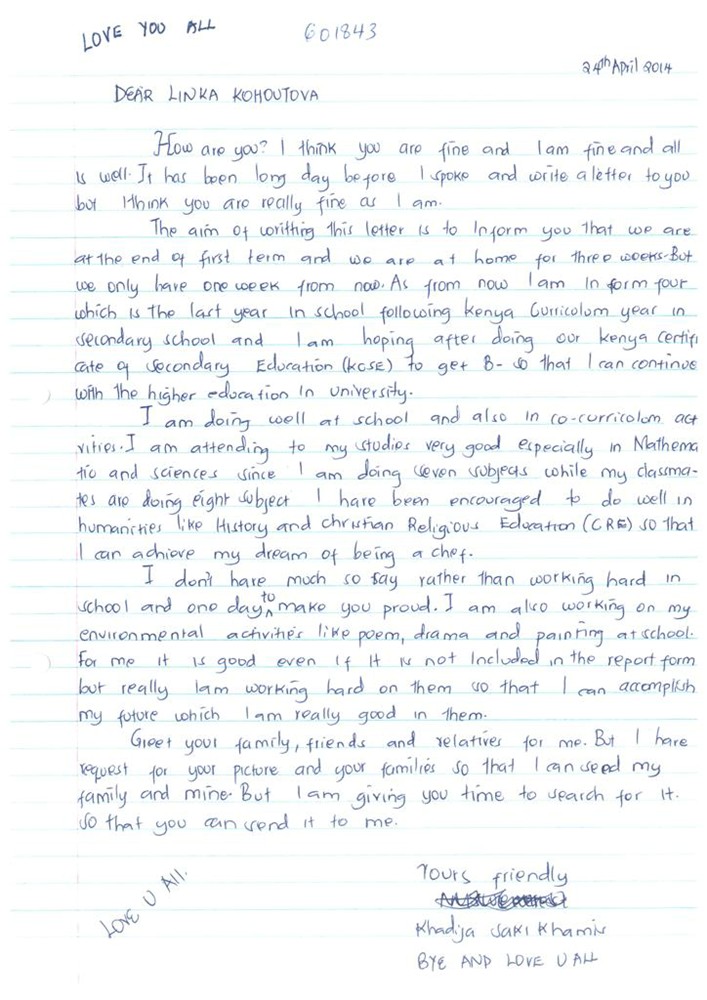 LOVE YOU ALL
601843
24th April 2014
DEAR LINKA KOHOUTOVA
How are you? I think you are fine and I am fine and all
is well. It has been long day before I spoke and write a letter to you
but I think you are really fine as I am.
The aim of writhing this letter is to Inform you that we are
at the end of first term and we are at home for three weeks. But
we only have one week from now. As from now I am In form four
which is the last year In school following Kenya Curricolum year in
secondary school and I am hoping after doing our kenya certifi
cate of Secondary Education (KCSE) to get B- so that I can continue
with the higher education In university.
I am doing well at school and also In co-curricolum act
vities. I am attending to my studies very good especially in Mathema
tic and sciences since I am doing seven subjects while my classma-
tes are doing eight subject I have been encouraged to do well in
humanities like History and christian Religious Education (CRE) so that
I can achieve my dream of being a chef.
I don't have much so say rather than working hard in
school and one day to make you proud. I am also working on my
environmental activities like poem, drama and painting at school.
For me it is good even if it is not Included in the report form
but really Iam working hard on them so that I can accomplish
my future which I am really good in them.
Greet your family, friends and relatives for me. But I have
request for your picture and your families so that I can seed my
family and mine. But I am giving you time to search for it.
so that you can send it to me.
Yours friendly
Khadija Saki Khamis
BYE AND LOVE U ALL
LOVE U All.